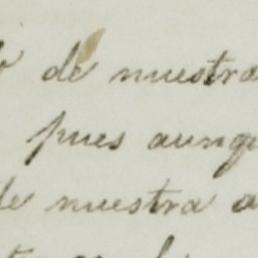 de nuestra
pues aunqu
de nuestra a